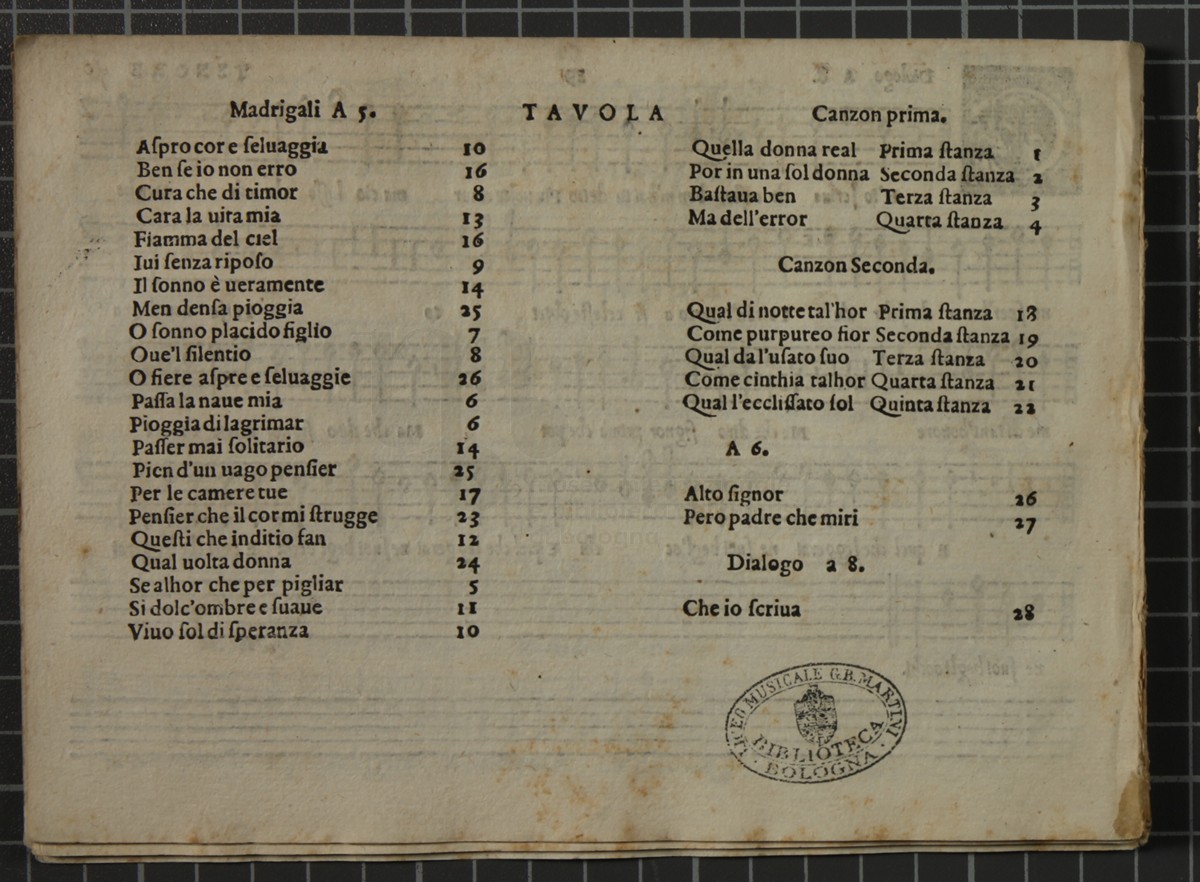 TAVOLA
Madrigali A 5.
Aſpro cor e ſeluaggia 10
Ben ſe io non erro 16
Cura che di timor 8
Cara la uita mia 13
Fiamma del ciel 16
Iui ſenza ripoſo 9
Il ſonno è ueramente 14
Men denſa pioggia 25
O ſonno placido figlio 7
Oue'l ſilentio 8
O fiere aſpre e ſeluaggie 26
Paſſa la naue mia 6
Pioggia di lagrimar 6
Paſſer mai ſolitario 14
Pien d'un uago penſier 25
Per le camere tue 17
Penſier che il cor mi ſtrugge 23
Queſti che inditio fan 12
Qual uolta donna 24
Se alhor che per pigliar 5
Si dolc'ombre e ſuaue 11
Viuo ſol di ſperanza 10
Canzon prima.
Quella donna real Prima ſtanza 1
Por in una ſol donna Seconda ſtanza 2
Baſtaua ben Terza ſtanza 3
Ma dell'error Quarta ſtanza 4
Canzon Seconda.
Qual di notte tal'hor Prima ſtanza 18
Come purpureo fior Seconda ſtanza 19
Qual da l'uſato ſuo Terza ſtanza 20
Come cinthia talhor Quarta ſtanza 21
Qual l'eccliſſato ſol Quinta ſtanza 22
A 6.
Alto ſignor 26
Pero padre che miri 27
Dialogo a 8.
Che io ſcriua 28
LICEO MUSICALE G.B. MARTINI
BIBLIOTECA
BOLOGNA